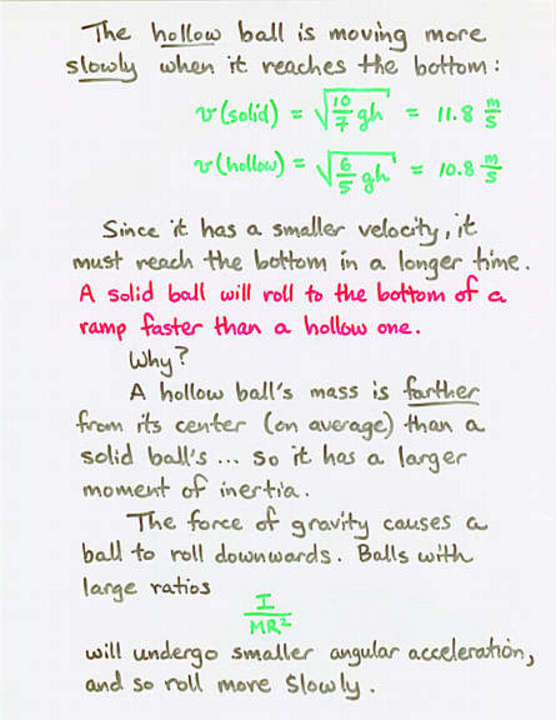 The hollow ball is moving more
slowly when it reaches the bottom:
v (solid) = √(10/7 gh) = 11.8 m/s
v (hollow) = √(6/5 gh) = 10.8 m/s
Since it has a smaller velocity, it
must reach the bottom in a longer time.
A solid ball will roll to the bottom of a
ramp faster than a hollow one.
Why?
A hollow ball's mass is farther
from its center (on average) than a
solid ball's ... so it has a larger
moment of inertia.
The force of gravity causes a
ball to roll downwards. Balls with
large ratios
I
MR²
will undergo smaller angular acceleration,
and so roll more slowly.